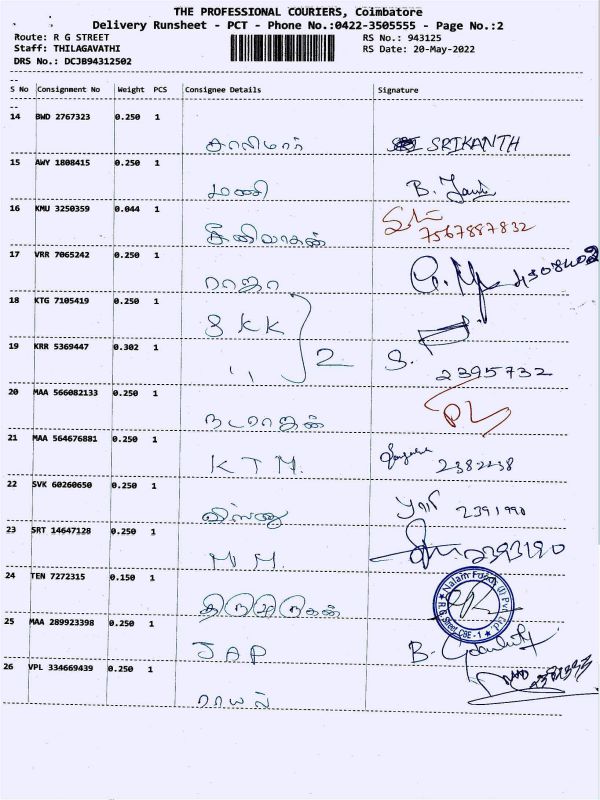 THE PROFESSIONAL COURIERS, Coimbatore
Delivery Runsheet - PCT - Phone No.:0422-3505555 - Page No.:2
Route: R G STREET RS No.: 943125
Staff: THILAGAVATHI RS Date: 20-May-2022
DRS No.: DCJB94312502
S No Consignment No Weight PCS Consignee Details Signature
14 BWD 2767323 0.250 1
சாலிமார் SRIKANTH
15 AWY 1808415 0.250 1
மணி B.
16 KMU 3250359 0.044 1
சீனிவாசன் 7567887832
17 VRR 7065242 0.250 1
ராஜா
18 KTG 7105419 0.250 1
SKK
19 KRR 5369447 0.302 1
,, 2 S. 2395732
20 MAA 566082133 0.250 1
நடராஜன்
21 MAA 564676881 0.250 1
KTM. 2382238
22 SVK 60260650 0.250 1
விஸ்ணு 2391990
23 SRT 14647128 0.250 1
M M.
24 TEN 7272315 0.150 1
திருமுருகன் Nalam Foods (I) Pvt Ltd. R G Street, CBE - 1
25 MAA 289923398 0.250 1
JAP B.
26 VPL 334669439 0.250 1
ராயல்